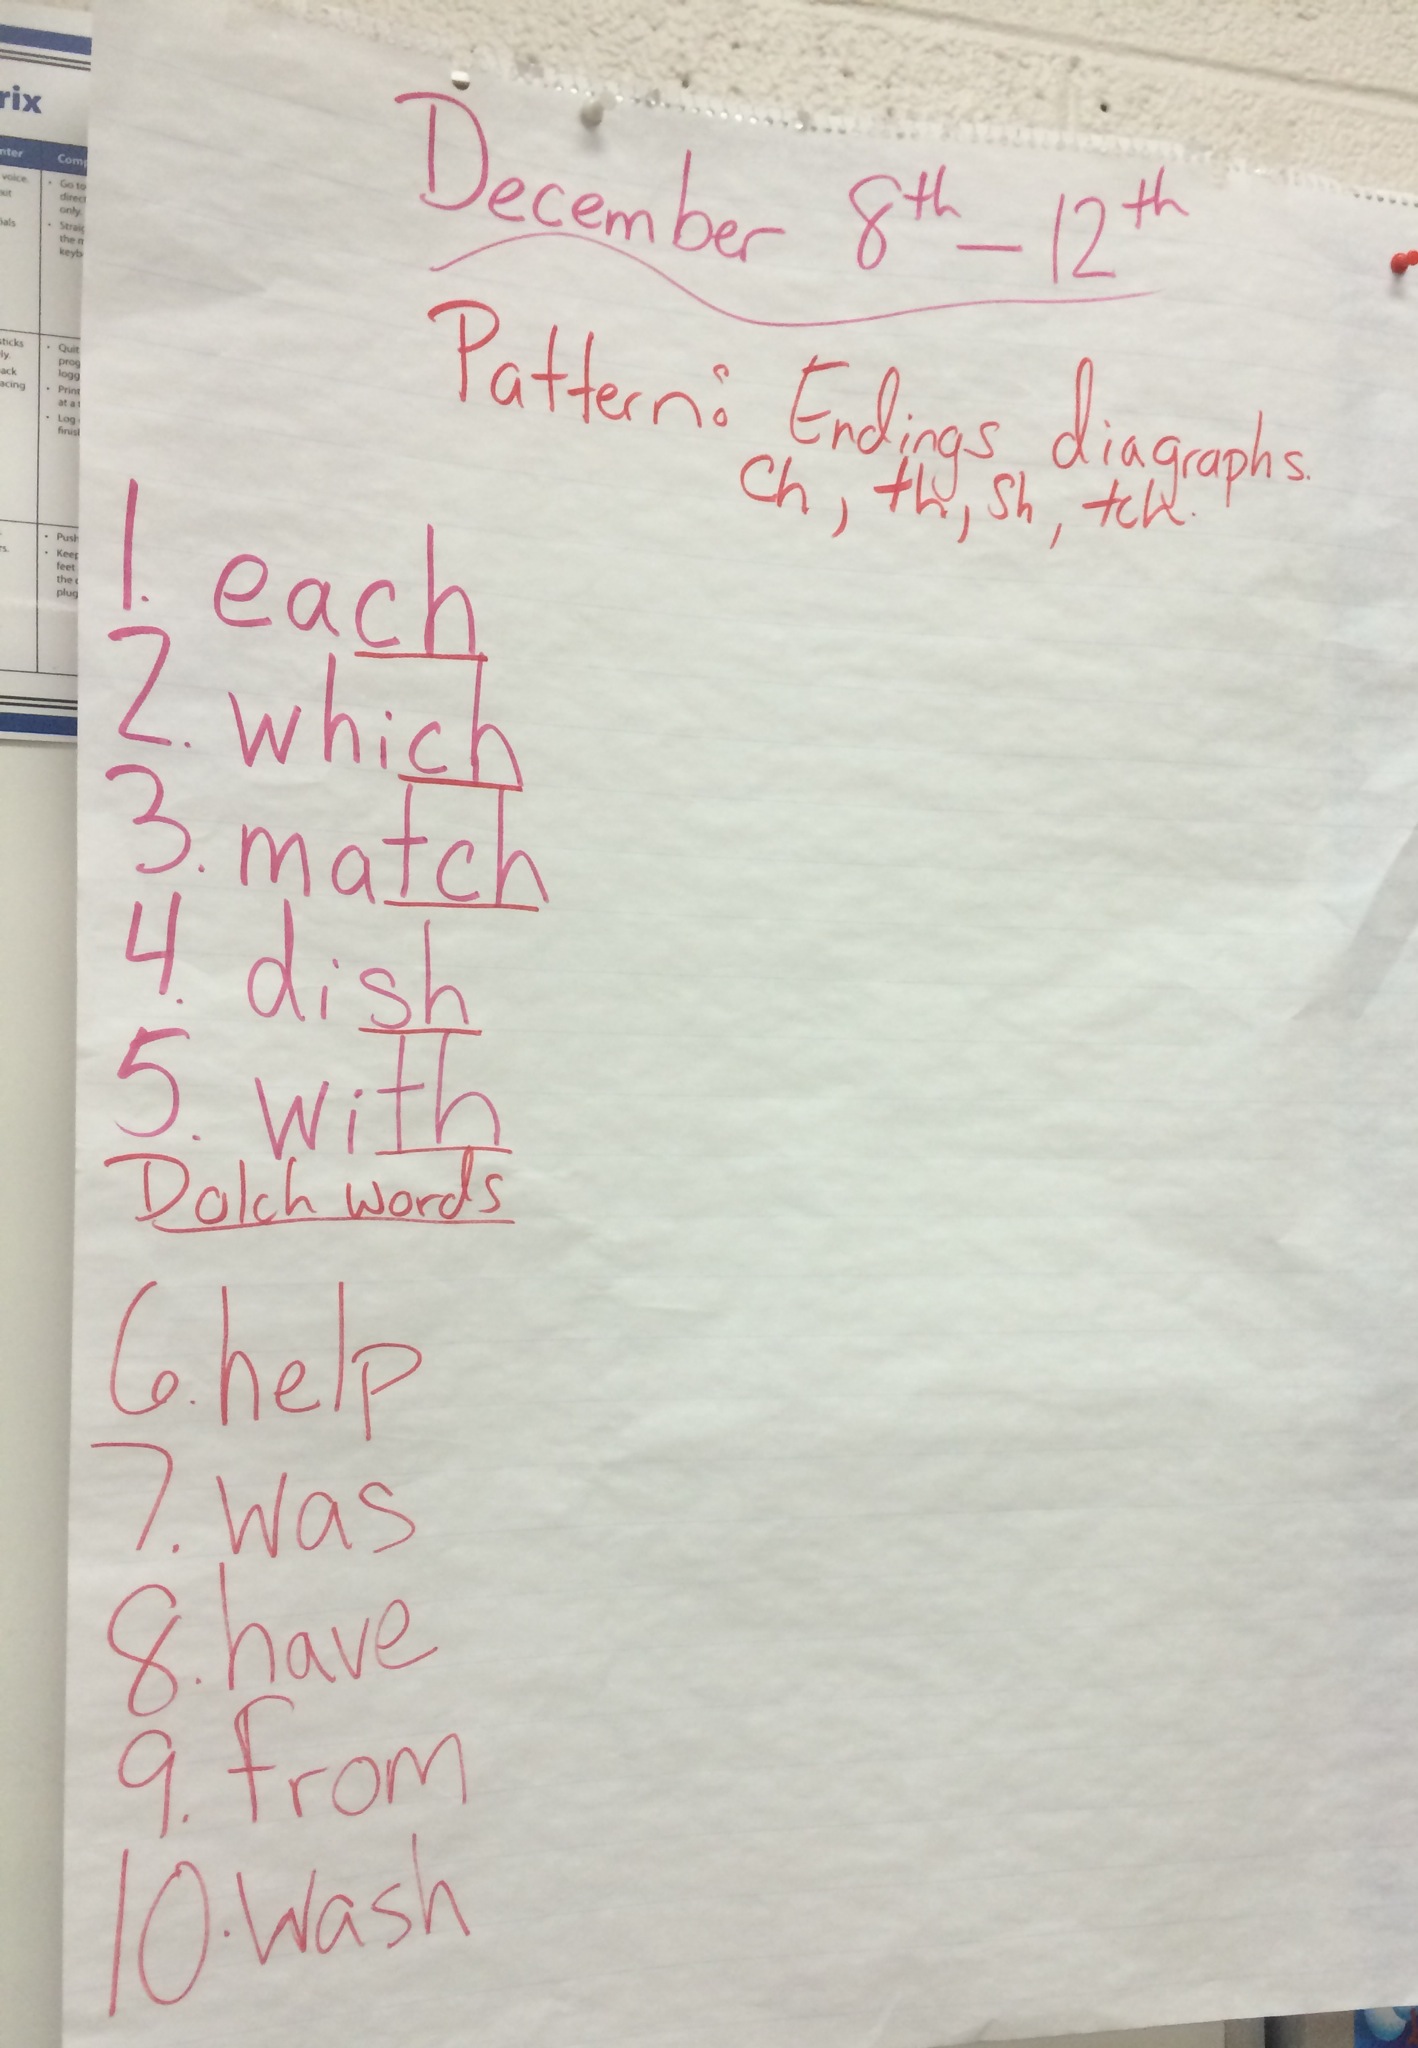 rix
nter
Comp
voice.
Go to
direct
only.
the m
keyb
sticks
ly.
ack
acing
Quit
prog
logg
Print
at a t
Log
finish
Push
Keep
feet
the c
plug
December 8th - 12th
Pattern: Endings diagraphs.
ch, th, sh, tch.
1. each
2. which
3. match
4. dish
5. with
Dolch words
6. help
7. was
8. have
9. from
10. wash